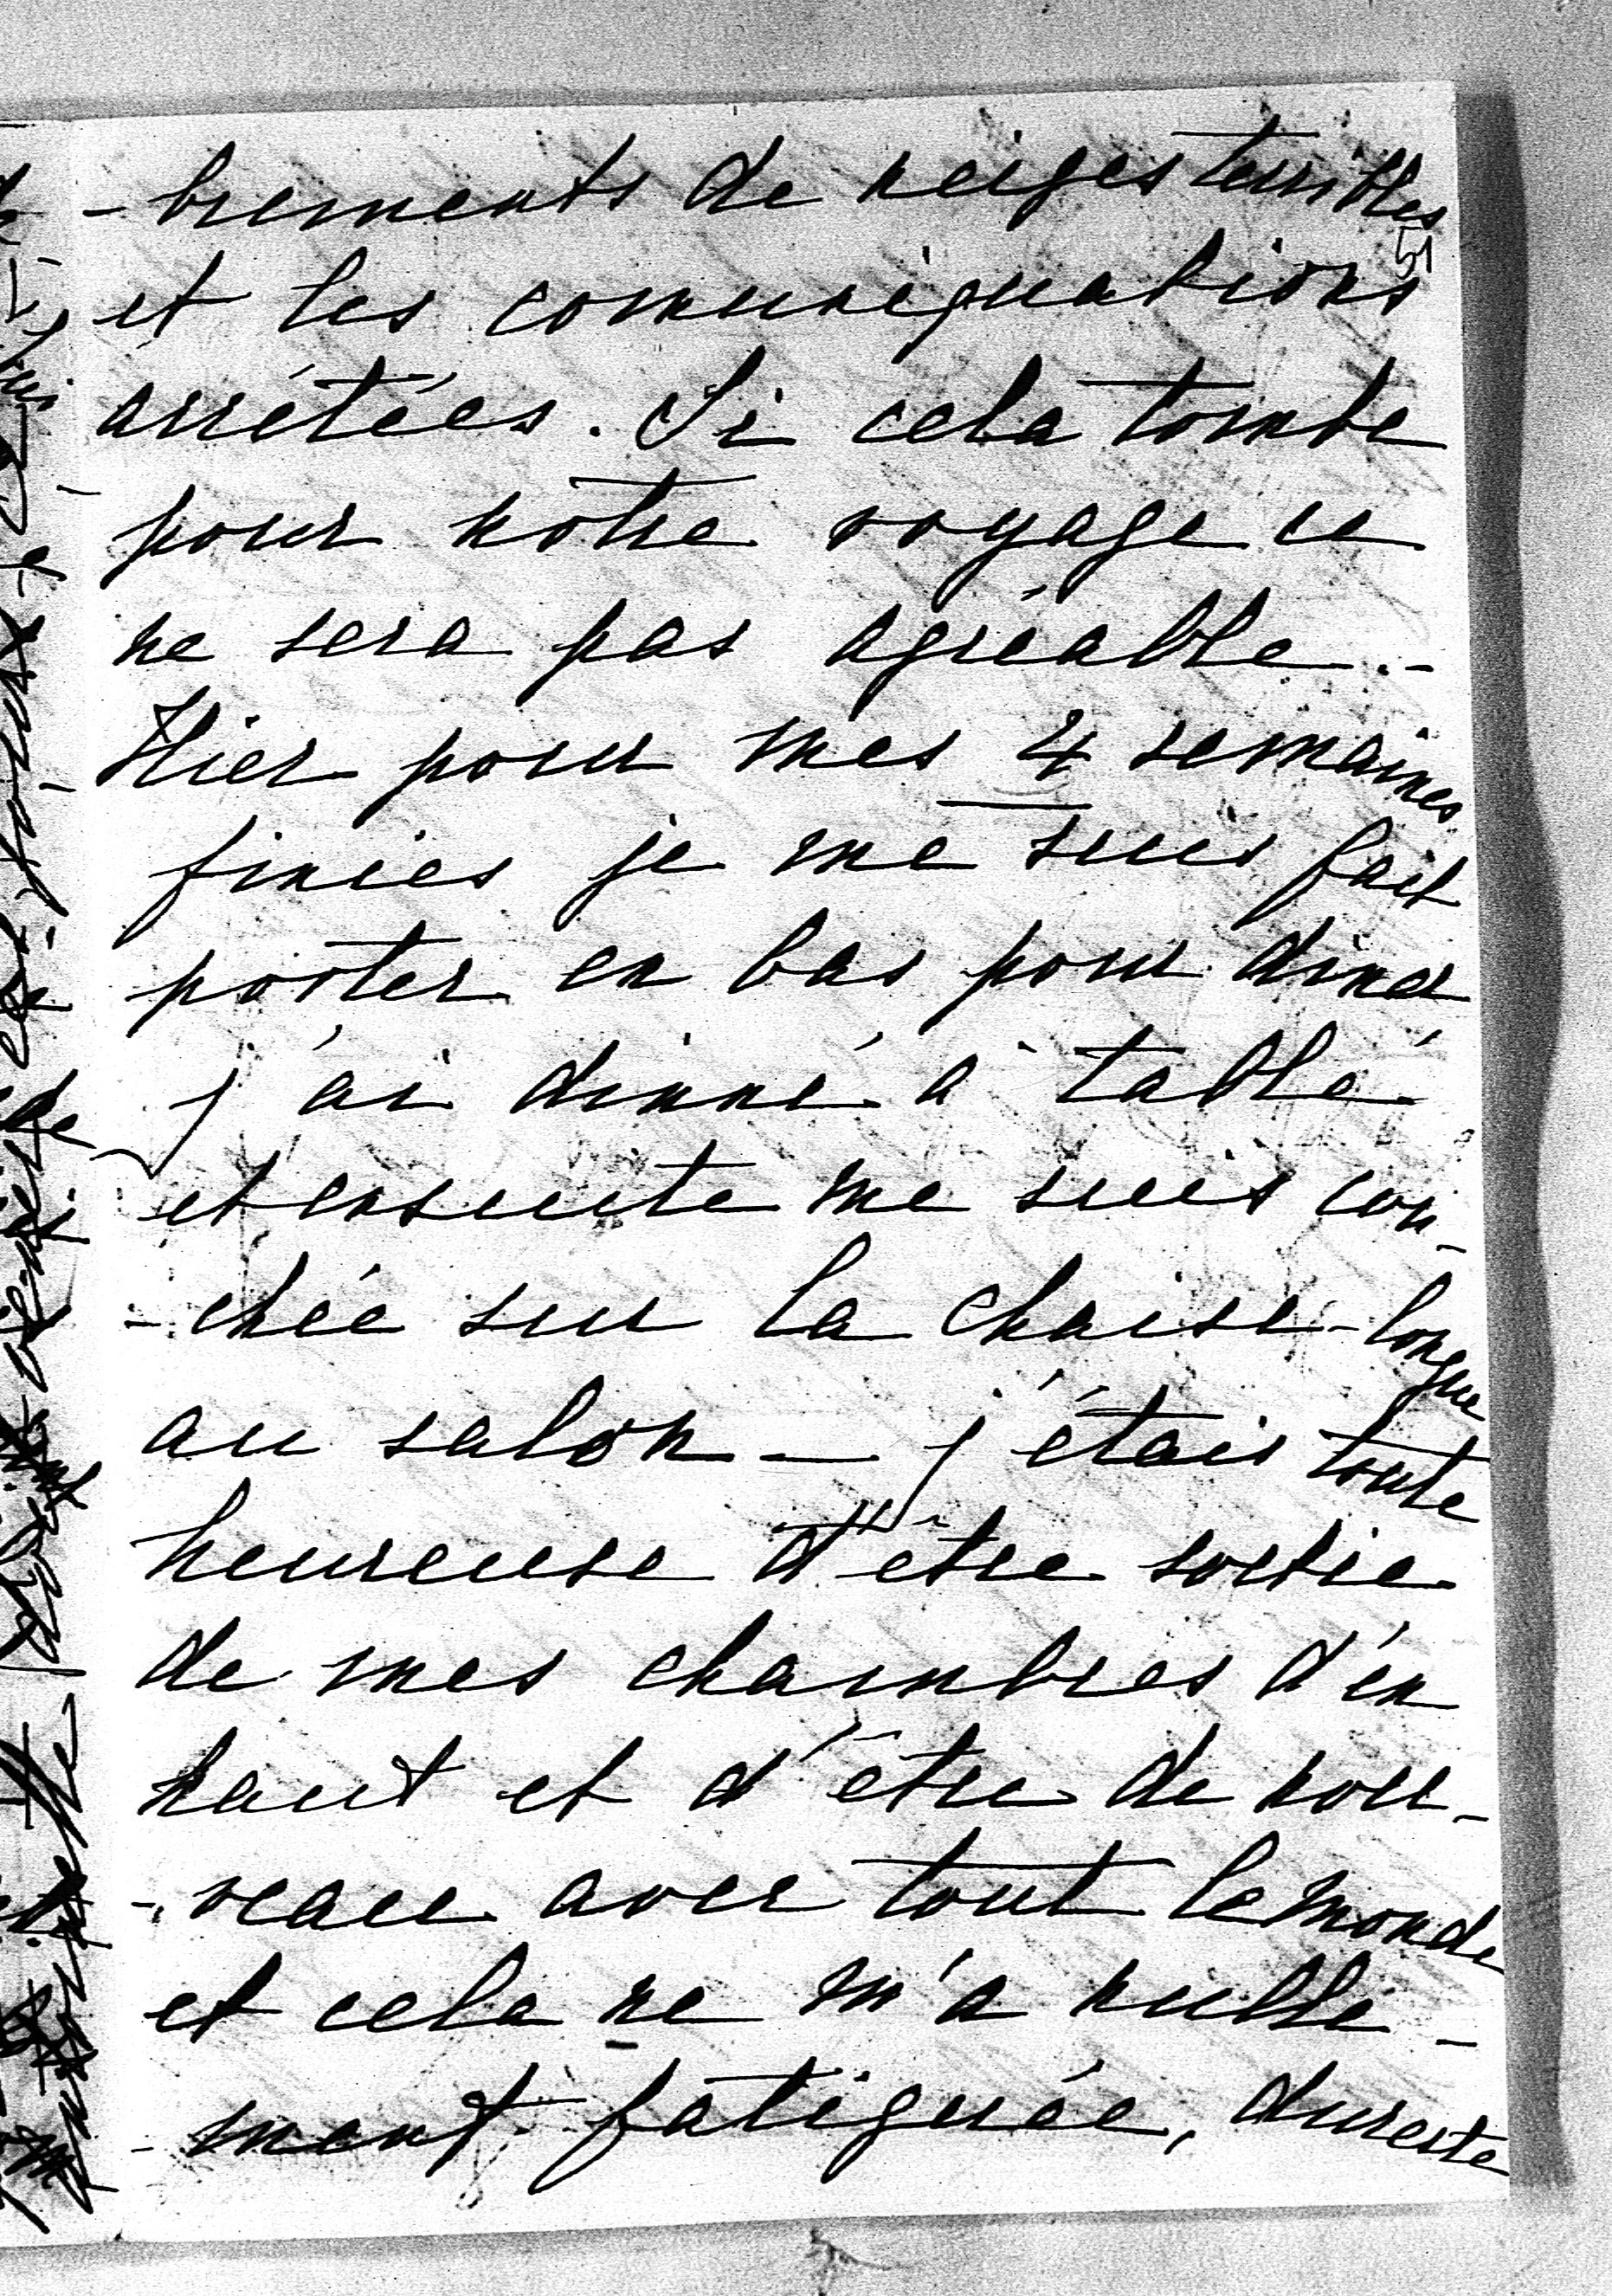 -brements de neiges terribles
51
et les comuniquations
arrêtées. Si cela tombe
pour notre voyage ce
ne sera pas agréable.-
Hier pour mes 4 semaines
finies je me suis fait
porter en bas pour diner
j'ai dinné à table
et ensuite me suis cou-
-chée sur la chaise-longue
au salon — j'étais toute
heureuse d'être sortie
de mes chambres d'en
haut et d'être de nou-
-veau avec tout le monde
et cela ne m'a nulle-
-ment fatiguée, du reste